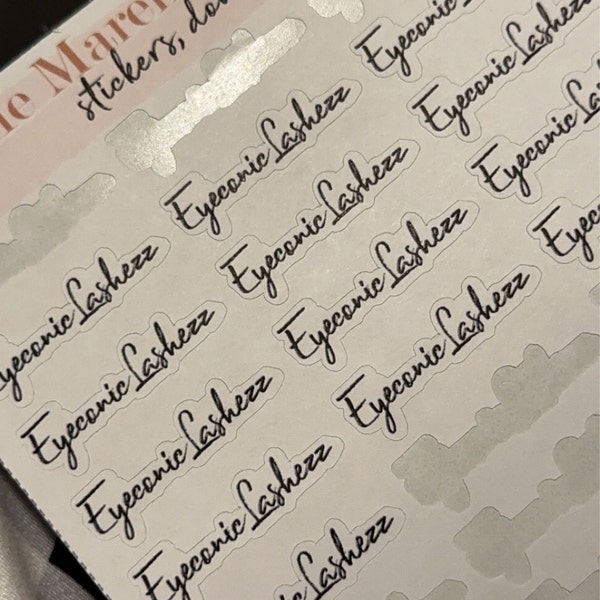 e Mare
stickers, do
Eyeconic
Eyeconic Lashezz
Eyeconic
Eyeco
Eyeconic Lashezz
Eyeconic Lashezz
Eyeconic Lashezz
Eyeconic Lashezz
yeconic Lashezz
Eyeconic Lashezz
Eyeconic Lashezz
Eyeconic Lashezz
ic Lashezz